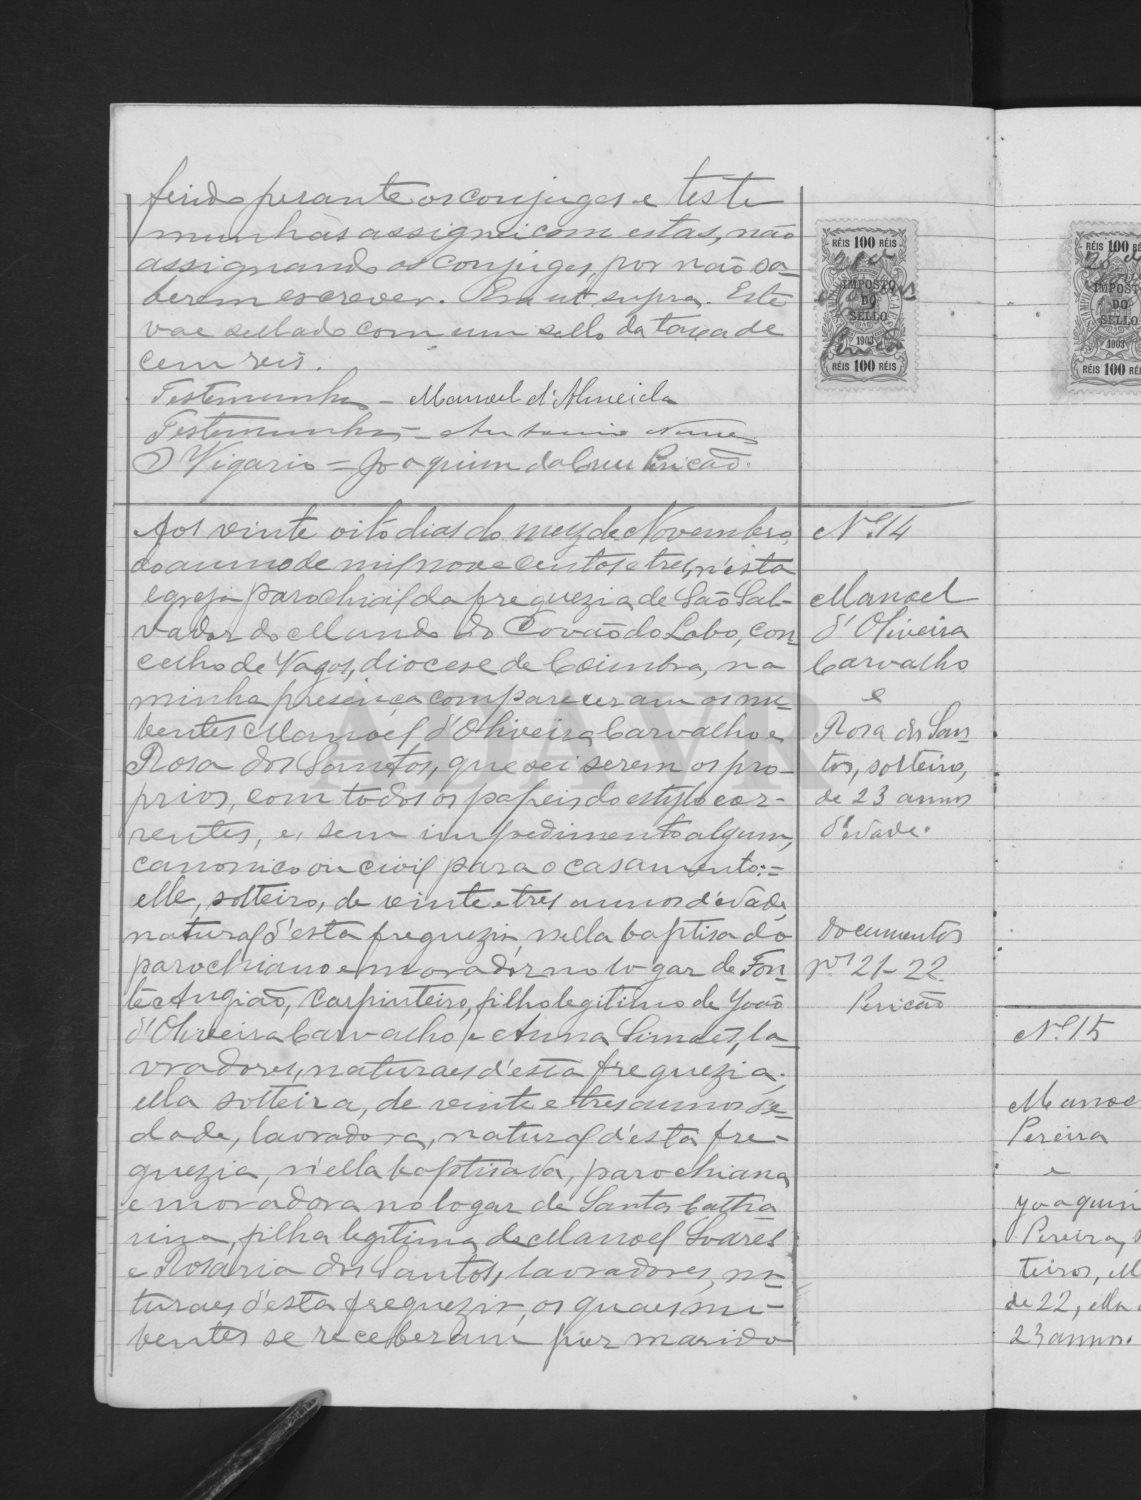 ferido perante os conjuges e teste
munhas assignei com estas, não
assignando os conjuges, por não sa-
berem escrever. Era ut supra. Este
vae sellado com um sello da taxa de
cem reis.
Testemunha - Manoel d'Almeida
Testemunha - Antonio Nunes
O Vigario = Joaquim da Cruz Pericão.
RÉIS 100 RÉIS
IMPOSTO
DO
SELLO
1903
Pericão
RÉIS 100 RÉIS
Aos vinte oito dias do mez de Novembro
do anno de mil nove centos e tres, n'esta
egreja parochial da freguezia de São Sal-
vador do Mundo do Covão do Lobo, con-
celho de Vagos, diocese de Coimbra, na
minha presença compareceram os nu-
bentes Manoel d'Oliveira Carvalho e
Rosa dos Santos, que sei serem os pro-
prios, com todos os papeis do estylo cor-
rentes, e, sem impedimento algum,
canonico ou civil para o casamento:=
elle, solteiro, de vinte e tres annos d'edade,
natural d'esta freguezia, n'ella baptisado
parochiano e morador no logar de Fon-
te Angião, carpinteiro, filho legitimo de João
d'Oliveira Carvalho e Anna Simões, la-
vradores, naturaes d'esta freguezia;
ella solteira, de vinte e tres annos d'e-
dade, lavradora, natural d'esta fre-
guezia, n'ella baptisada, parochiana
e moradora no logar de Santa Catha-
rina, filha legitima de Manoel Soares
e Rosaria dos Santos, lavradores, na-
turaes d'esta freguezia, os quaes nu-
bentes se receberam por marido
Nº 14
Manoel
d'Oliveira
Carvalho
e
Rosa dos San-
tos, solteiros,
de 23 annos
d'edade.
Documentos
nos 21-22
Pericão
RÉIS 100 RÉ
IMPOSTO
DO
SELLO
1903
RÉIS 100 RÉI
Nº 15
Manoe
Pereira
e
Joaquin
Pereira, s
teiros, ell
de 22, ella
23 annos.
ADAVR